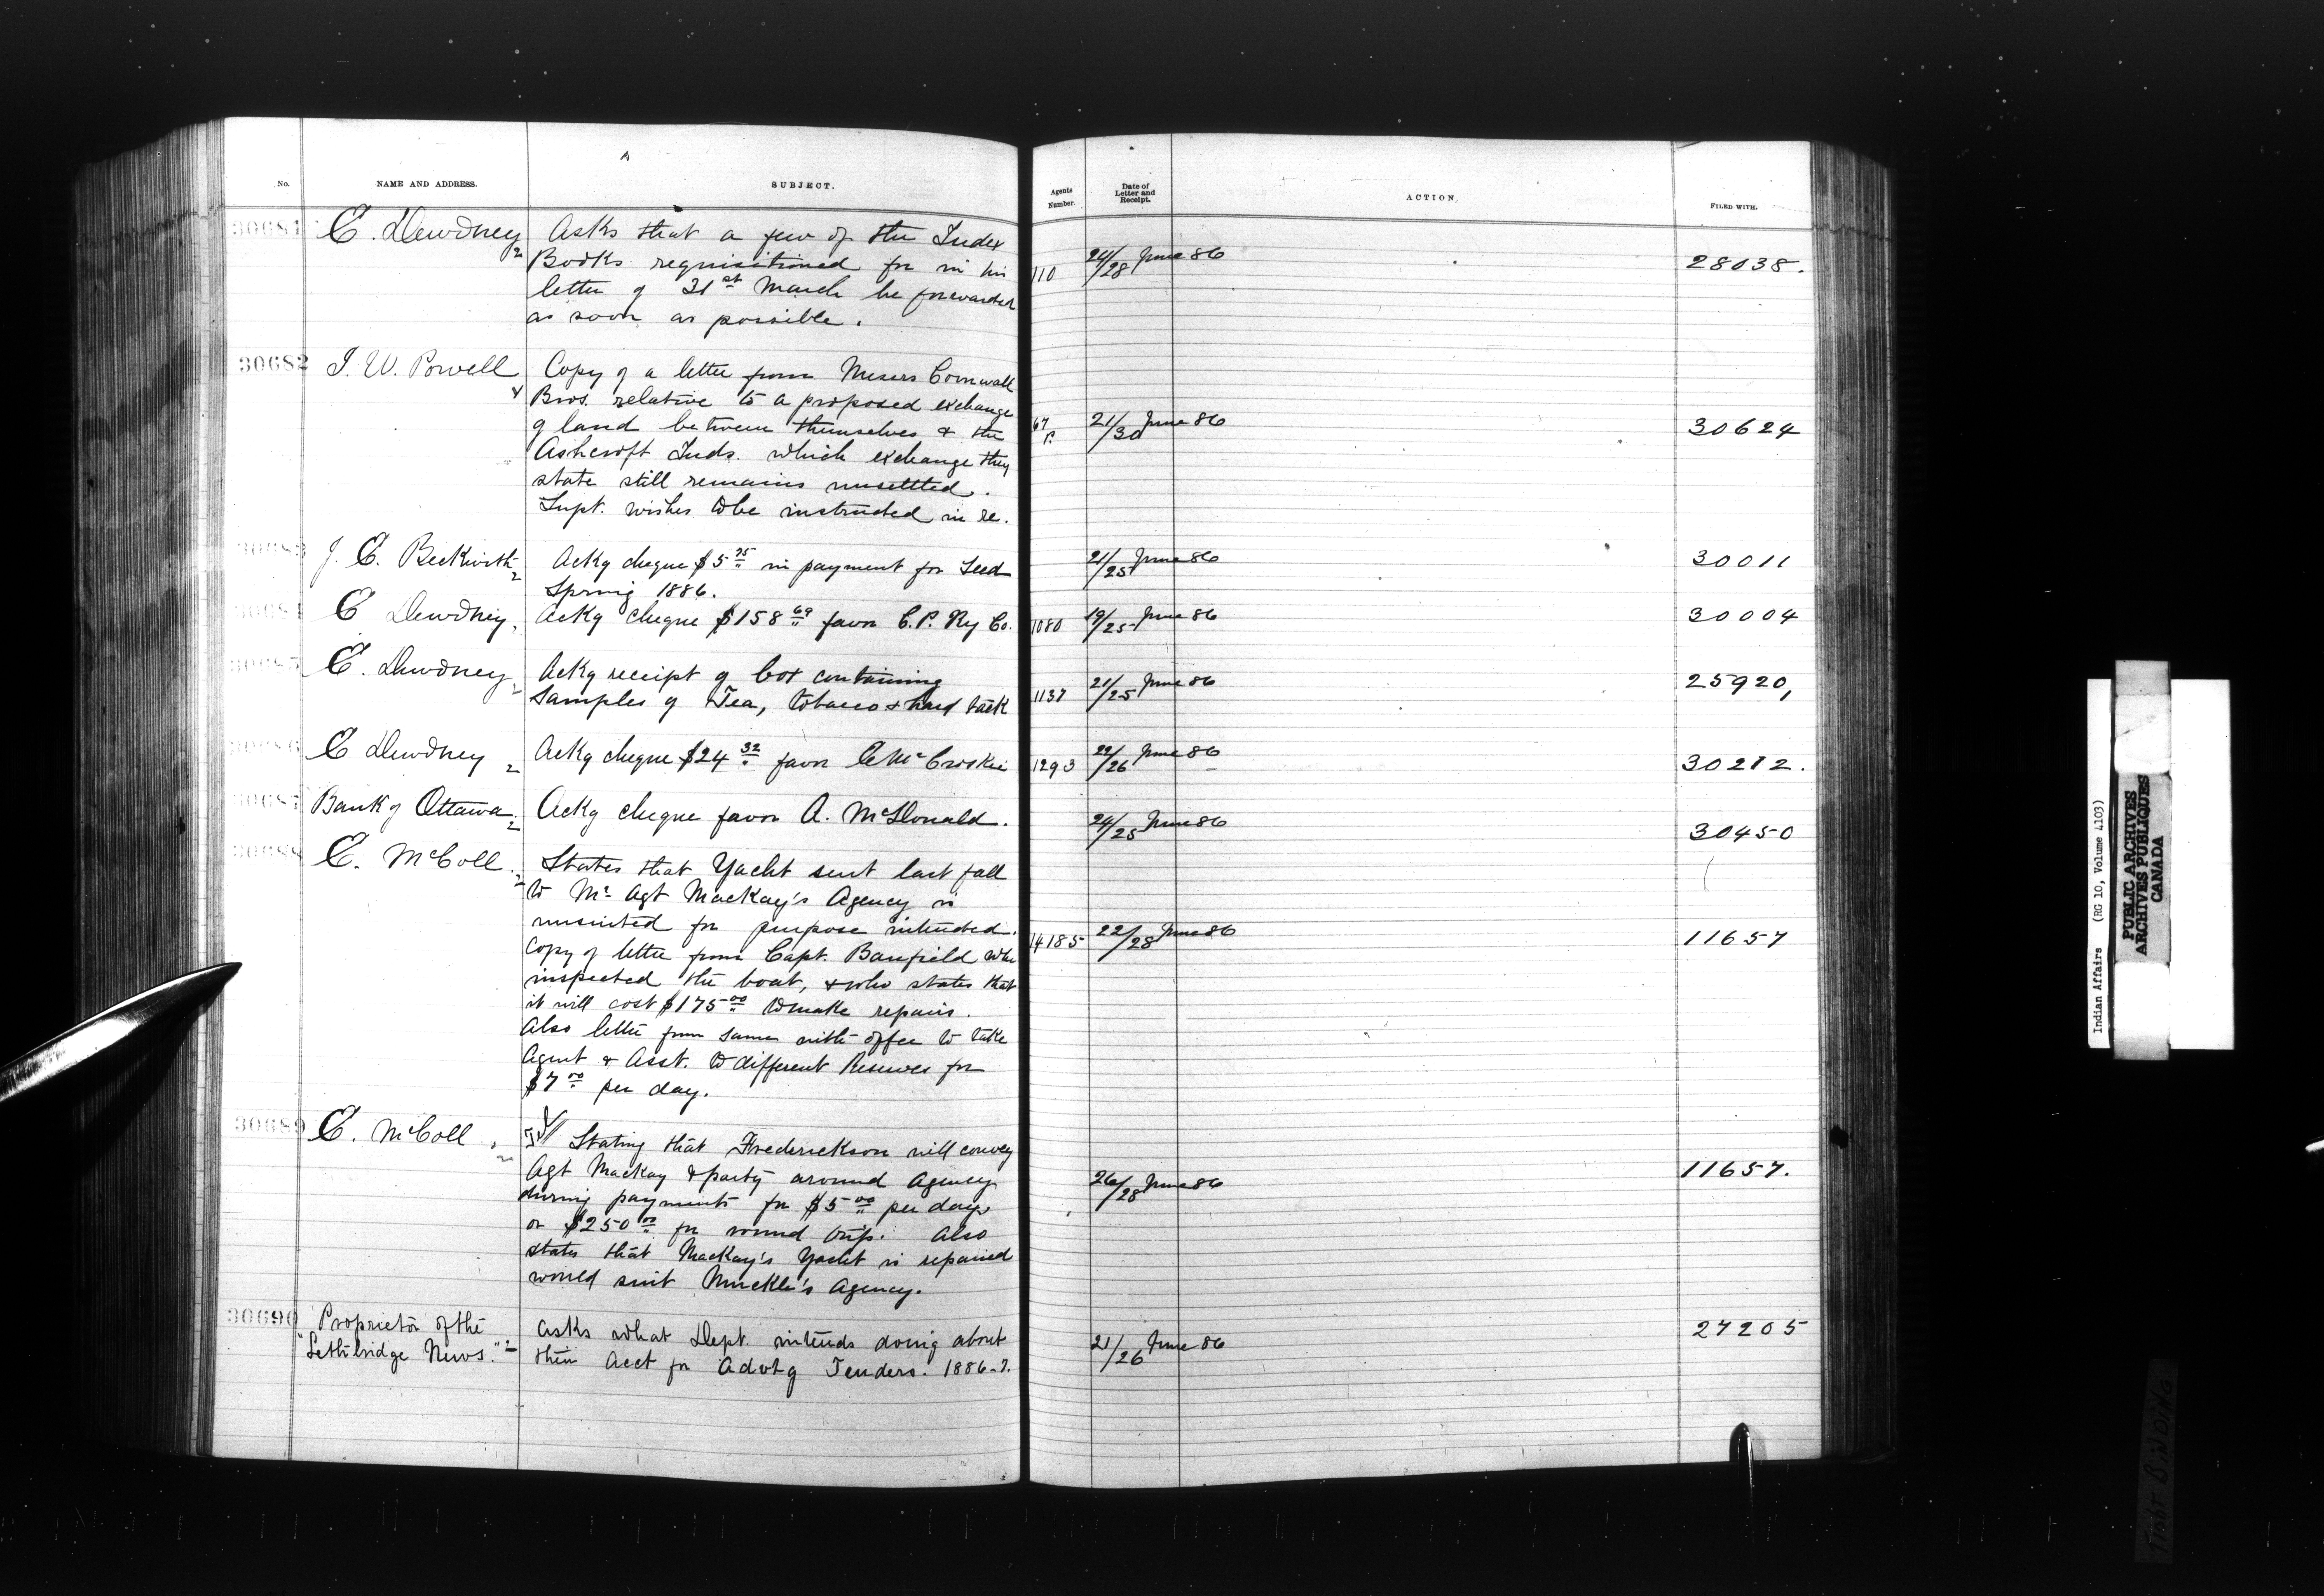 No. NAME AND ADDRESS. SUBJECT. Agents Number. Date of Letter and Receipt. ACTION. FILED WITH.
30681 E. Dewdney Asks that a few of the Index
Books requisitioned for in his
letter of 31st March be forwarded
as soon as possible.
110 24/28 June 86 28038.
30682 I. W. Powell Copy of a letter from Messrs Cornwall
Bros. relative to a proposed exchange
of land between themselves & the
Ashcroft Inds. which exchange they
state still remains unsettled.
Supt. wishes to be instructed in re.
67/P. 21/30 June 86 30624
30683 J. E. Beckwith Ackg cheque $5 75 in payment for Seed
Spring 1886.
21/25 June 86 30011
30684 E Dewdney, Ackg cheque $158 69 favor C. P. Ry Co.
1080 19/25 June 86 30004
30685 E. Dewdney, Ackg receipt of box containing
samples of Tea, tobacco & hard tack
1137 21/25 June 86 25920,
30686 E Dewdney Ackg cheque $24 32 favor McCroskie
1293 22/26 June 86 30212.
30687 Bank of Ottawa Ackg cheque favor A. McDonald.
24/25 June 86 30450
30688 E. McColl States that Yacht sent last fall
to Mr Agt Mackay's Agency is
unsuited for purpose intended.
Copy of letter from Capt. Banfield who
inspected the boat, & who states that
it will cost $175 00 to make repairs.
Also letter from same with offer to take
Agent & Asst. to different Reserves for
$7 00 per day.
14185 22/28 June 86 11657
30689 E. McColl Stating that Frederickson will convey
Agt Mackay & party around Agency
during payments for $5 00 per day
or $250 00 for round trip. Also
states that Mackay's Yacht is repaired
would suit Muckle's Agency.
26/28 June 86 11657.
30690 Proprietor of the
"Lethbridge News." Asks what Dept. intends doing about
their Acct for Advtg Tenders. 1886-7.
21/26 June 86 27205
Indian Affairs (RG 10, Volume 4103)
PUBLIC ARCHIVES
ARCHIVES PUBLIQUES
CANADA
TIGHT BINDING